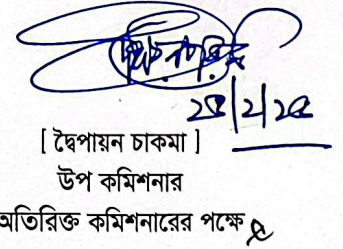 ২৪|২|২৫
[ দ্বৈপায়ন চাকমা ]
উপ কমিশনার
অতিরিক্ত কমিশনারের পক্ষে